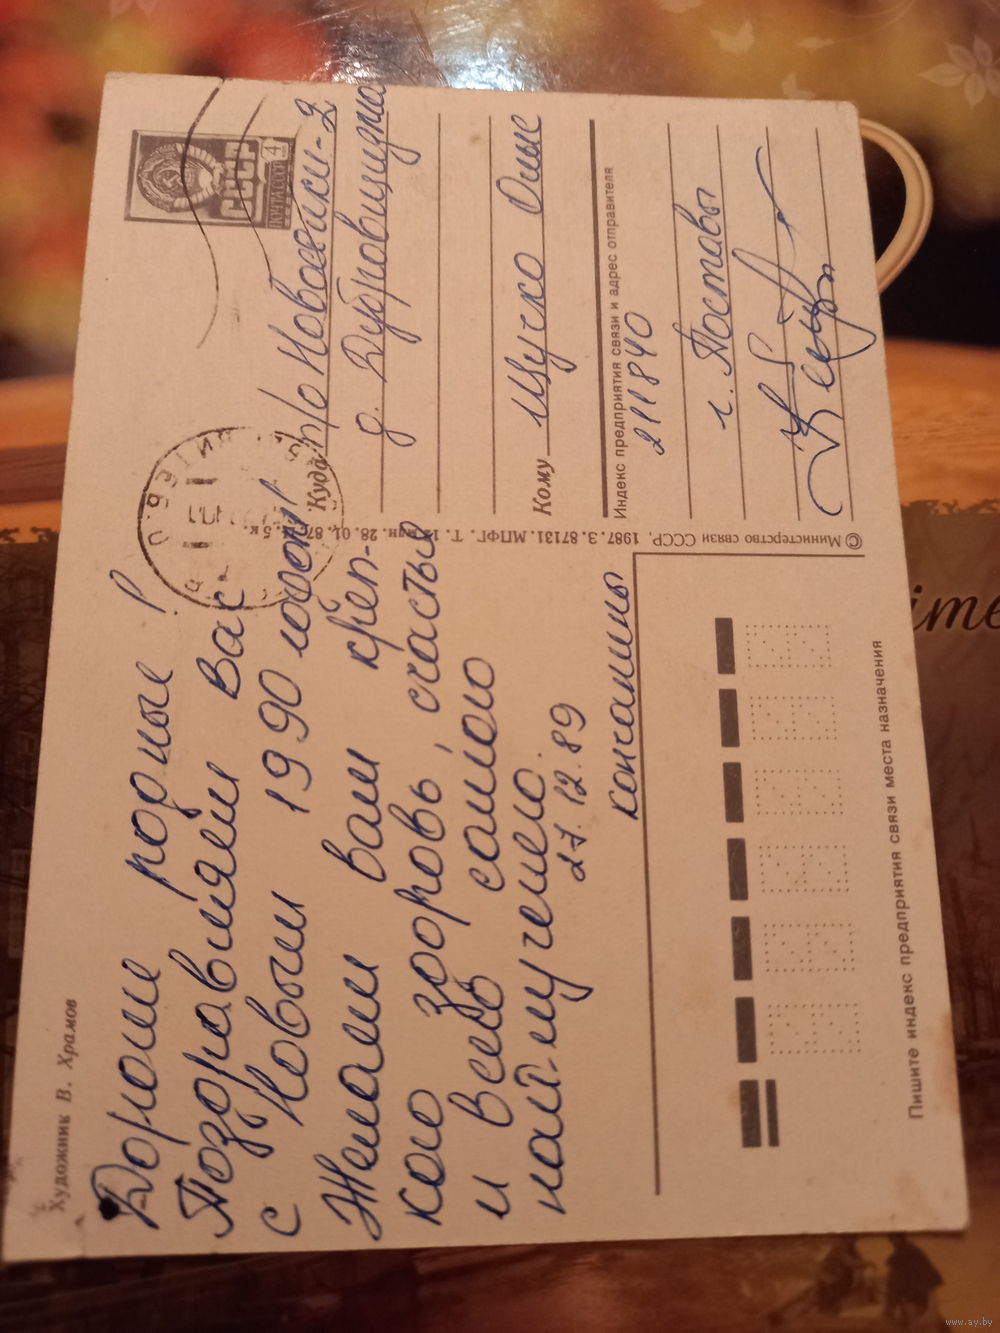 Художник В. Храмов
Дорогие родные!
Поздравляем Вас
с Новым 1990 годом!
Желаем Вам креп-
кого здоровь, счастья
и всего самого
наилучшего.
27.12.89
СССР
4
ПОЧТА СССР
Куда п/о Новосёлки-2
д. Дубровщизна
Кому Щучко Ольге
Индекс предприятия связи и адрес отправителя
211840
г. Поставы
© Министерство связи СССР. 1987. З. 87131. МПФГ. Т. 12 млн. 28. 01. 87. Ц. 5 к.
Пишите индекс предприятия связи места назначения
ime
www.ay.by